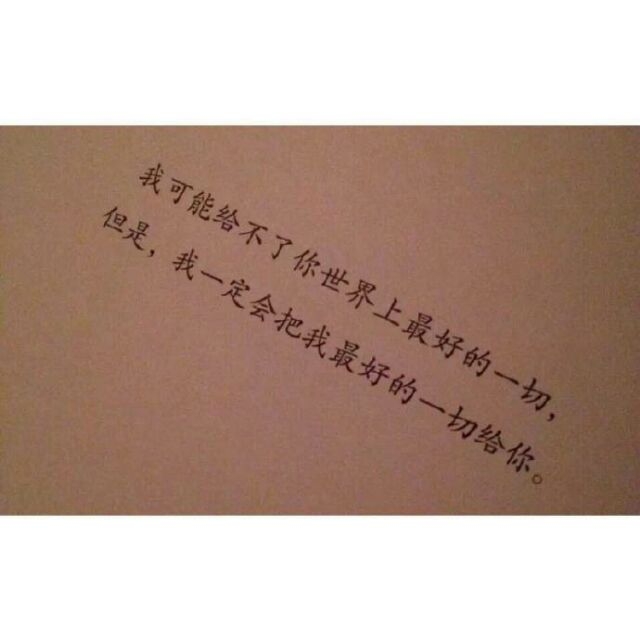 我可能给不了你世界上最好的一切，
但是，我一定会把我最好的一切给你。